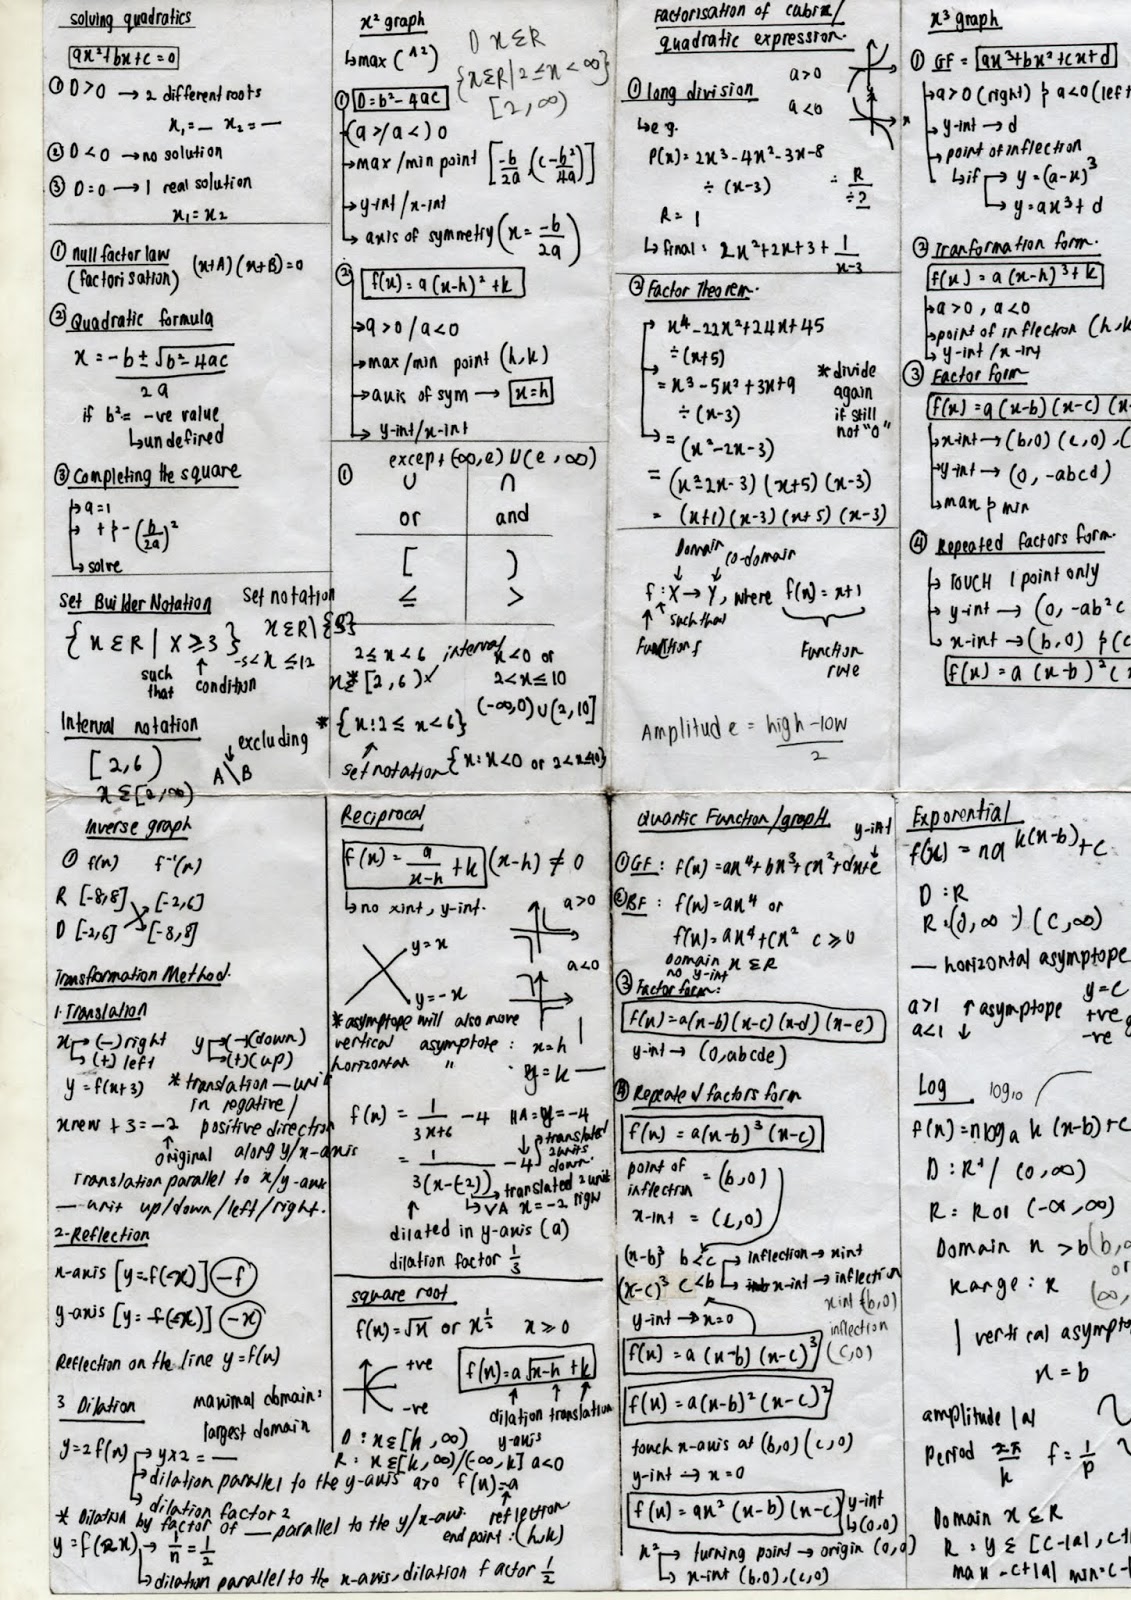 solving quadratics
ax²+bx+c=0
① D>0 → 2 different roots
x₁=— x₂=—
② D<0 → no solution
③ D=0 → 1 real solution
x₁=x₂
① Null factor law
(factorisation) (x+A)(x+B)=0
② Quadratic formula
x = -b ± √b²-4ac
2a
if b²= -ve value
↳ undefined
③ Completing the square
→ a=1
→ + & - (b/2a)²
→ solve
Set Builder Notation Set notation
{x∈R | X≥3} x∈R\{3}
such that ↑ condition -5<x≤12
Interval notation
[2,6)
x∈[2,∞)
excluding
A\B
x² graph
↳ max (^2)
D x∈R
{x∈R|2≤x<∞}
[2,∞)
① D=b²-4ac
→ (a>/a<) 0
→ max/min point [-b/2a, (c-b²/4a)]
→ y-int/x-int
→ axis of symmetry (x = -b/2a)
② f(x) = a(x-h)²+k
→ a>0/a<0
→ max/min point (h,k)
→ axis of sym → x=h
→ y-int/x-int
except (∞,e)∪(e,∞)
① ∪ ∩
or and
[ )
≤ >
2≤x<6 interval
x∈[2,6)
x<0 or
2<x≤10
(-∞,0)∪(2,10]
* {x:2≤x<6}
↑
set notation {x:x<0 or 2<x≤10}
Factorisation of cubix/
quadratic expression.
① long division
↳ e.g.
a>0
a<0
x
P(x) = 2x³-4x²-3x-8
÷(x-3)
÷ R
÷?
R = 1
↳ final: 2x²+2x+3+ 1
x-3
② Factor Theorem.
x⁴-22x²+24x+45
÷(x+5)
= x³-5x²+3x+9
÷(x-3)
= (x²-2x-3)
* divide
again
if still
not "0"
= (x²-2x-3)(x+5)(x-3)
= (x+1)(x-3)(x+5)(x-3)
Domain co-domain
f: X → Y, where f(x) = x+1
such that
Functions
Function
rule
Amplitude = high-low
2
x³ graph
① GF = ax³+bx²+cx+d
→ a>0 (right) & a<0 (left
→ y-int → d
→ point of inflection
↳ if → y=(a-x)³
→ y=ax³+d
② Tranformation form.
f(x) = a(x-h)³+k
→ a>0, a<0
→ point of inflection (h,k
→ y-int/x-int
③ Factor form
f(x) = a(x-b)(x-c)(x-
→ x-int → (b,0)(c,0),(
→ y-int → (0,-abcd)
→ max & min
④ Repeated factors form.
→ TOUCH 1 point only
→ y-int → (0,-ab²c
→ x-int → (b,0) & (c
f(x) = a(x-b)²(x
Inverse graph
① f(x) f⁻¹(x)
R [-8,8] [-2,6]
D [-2,6] [-8,8]
Transformation Method.
1. Translation
x → (-) right y → (-)(down)
→ (+) left → (+)(up)
y = f(x+3) * translation — unit
in negative/
xnew + 3 = -2 positive direction
↑ original along y/x-axis
Translation parallel to x/y-axis
— unit up/down/left/right.
2-Reflection
x-axis [y=-f(x)] -f
y-axis [y=f(-x)] -x
Reflection on the line y=f(x)
3 Dilation
maximal domain:
largest domain
y=2f(x) → y×2 = —
→ dilation parallel to the y-axis
→ dilation factor 2
* Dilation by factor of — parallel to the y/x-axis.
y = f(2x) → 1/n = 1/2
↳ dilation parallel to the x-axis, dilation factor 1/2
Reciprocal
f(x) = a/x-h + k (x-h) ≠ 0
↳ no xint, y-int.
a>0
y=x
a<0
y=-x
* asymptope will also move
vertical asymptote: x=h |
horizontal " : y=k —
f(x) = 1/3x+6 -4 HA=y=-4
translated
2units
down.
= 1/3(x-(-2)) -4
translated 2 unit
VA x=-2 right
dilated in y-axis (a)
dilation factor 1/3
square root
f(x) = √x or x^½ x≥0
+ve
-ve
f(x) = a√x-h + k
dilation translation
y-axis
D: x∈[h,∞)
R: x∈[k,∞)/(-∞,k] a<0
a>0 f(x)=-a
reflection
end point: (h,k)
Quartic Function/graph
y-int
① GF: f(x) = ax⁴+bx³+cx²+dx+e
② BF: f(x) = ax⁴ or
f(x) = ax⁴+cx² c≥0
domain x∈R
no y-int
③ Factor form:
f(x) = a(x-b)(x-c)(x-d)(x-e)
y-int → (0,abcde)
④ Repeated factors form
f(x) = a(x-b)³(x-c)
point of
inflection = (b,0)
x-int = (c,0)
(x-b)³ b<c → inflection → xint
(x-c)³ c<b → x-int → inflection
xint (b,0)
inflection
(c,0)
y-int → x=0
f(x) = a(x-b)(x-c)³
f(x) = a(x-b)²(x-c)²
touch x-axis at (b,0)(c,0)
y-int → x=0
f(x) = ax²(x-b)(x-c) y-int
↳ (0,0)
x² → turning point → origin (0,0)
↳ x-int (b,0),(c,0)
Exponential
f(x) = na^k(x-b) + c
D: R
R: (0,∞) (c,∞)
— horizontal asymptope
y=c
a>1 ↑ asymptope +ve
a<1 ↓ -ve
Log log₁₀
f(x) = nlog a k(x-b)+c
D: R⁺/ (0,∞)
R: R or (-∞,∞)
Domain x>b (b,∞
or
Range: x (∞,
| vertical asympto
x=b
amplitude |a|
period 2π/k f = 1/p
Domain x∈R
R: y∈[c-|a|, c+
max -c+|a| min=c-|